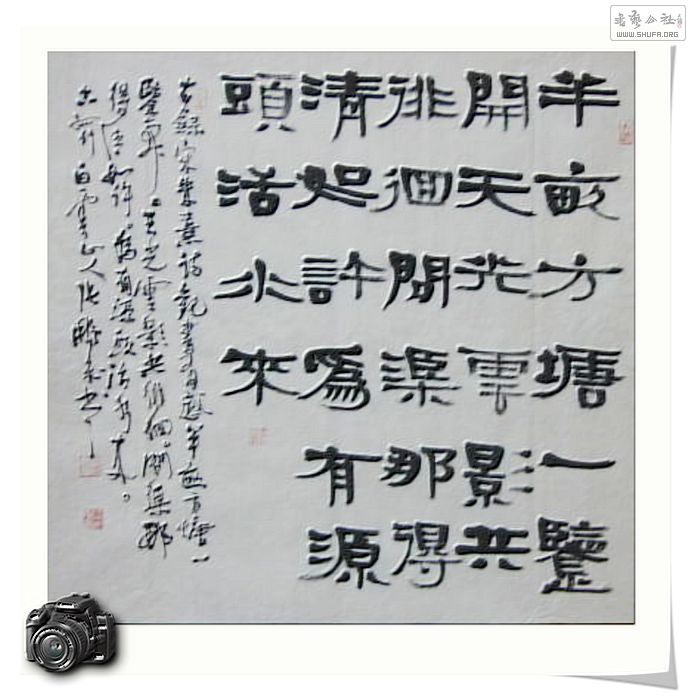 半畝方塘一鑒
開天光雲影共
徘徊問渠那得
清如許為有源
頭活水來
錄宋朱熹詩觀書有感半畝方塘一
鑒開。天光雲影共徘徊。問渠那
得清如許。為有源頭活水來。
白雲山人張鵬書
书艺公社
WWW.SHUFA.ORG